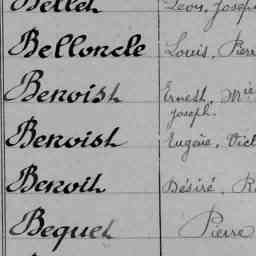 Bellet Léon, Joseph
Belloncle Louis, Pierre
Benoist Ernest, Mie
Joseph.
Benoist Eugène, Vict
Benoit Désiré, R
Bequet Pierre